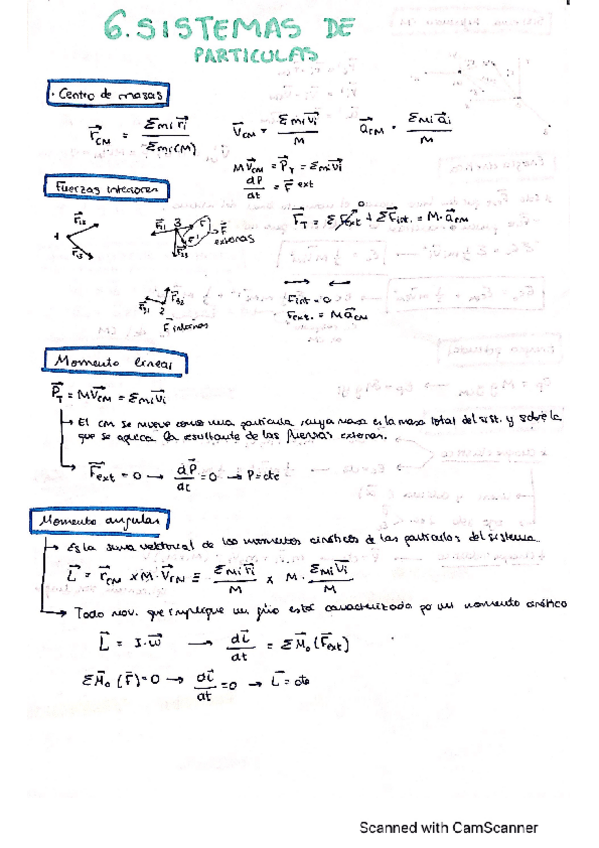 6. SISTEMAS DE
PARTICULAS
· Centro de masas
r⃗CM = Σmi r⃗i / Σmi(M)    V⃗CM = Σmi v⃗i / M    a⃗CM = Σmi a⃗i / M
M V⃗CM = P⃗T = Σmi v⃗i
dP/dt = F⃗ext
Fuerzas interiores
F⃗T = ΣF⃗ext + ΣF⃗int. = M·a⃗CM
externas
Fint = 0
Fext. = M a⃗CM
F⃗ internas
Momento lineal
P⃗T = M V⃗CM = Σmi v⃗i
→ El CM se mueve como una particula, cuya masa es la masa total del sist. y sobre la
que se aplica la resultante de las fuerzas externas.
F⃗ext = 0 → dP⃗/dt = 0 → P = cte
Momento angular
→ Es la suma vectorial de los momentos cinéticos de las particulas del sistema
L⃗ = r⃗CM × M · V⃗CM ≡ Σmi r⃗i / M × M · Σmi v⃗i / M
→ Todo mov. que implique un giro está caracterizada por un momento cinético
L⃗ = I·w⃗ → dL⃗/dt = ΣM⃗o (F⃗ext)
ΣM⃗o (F⃗) = 0 → dL⃗/dt = 0 → L⃗ = cte
Scanned with CamScanner